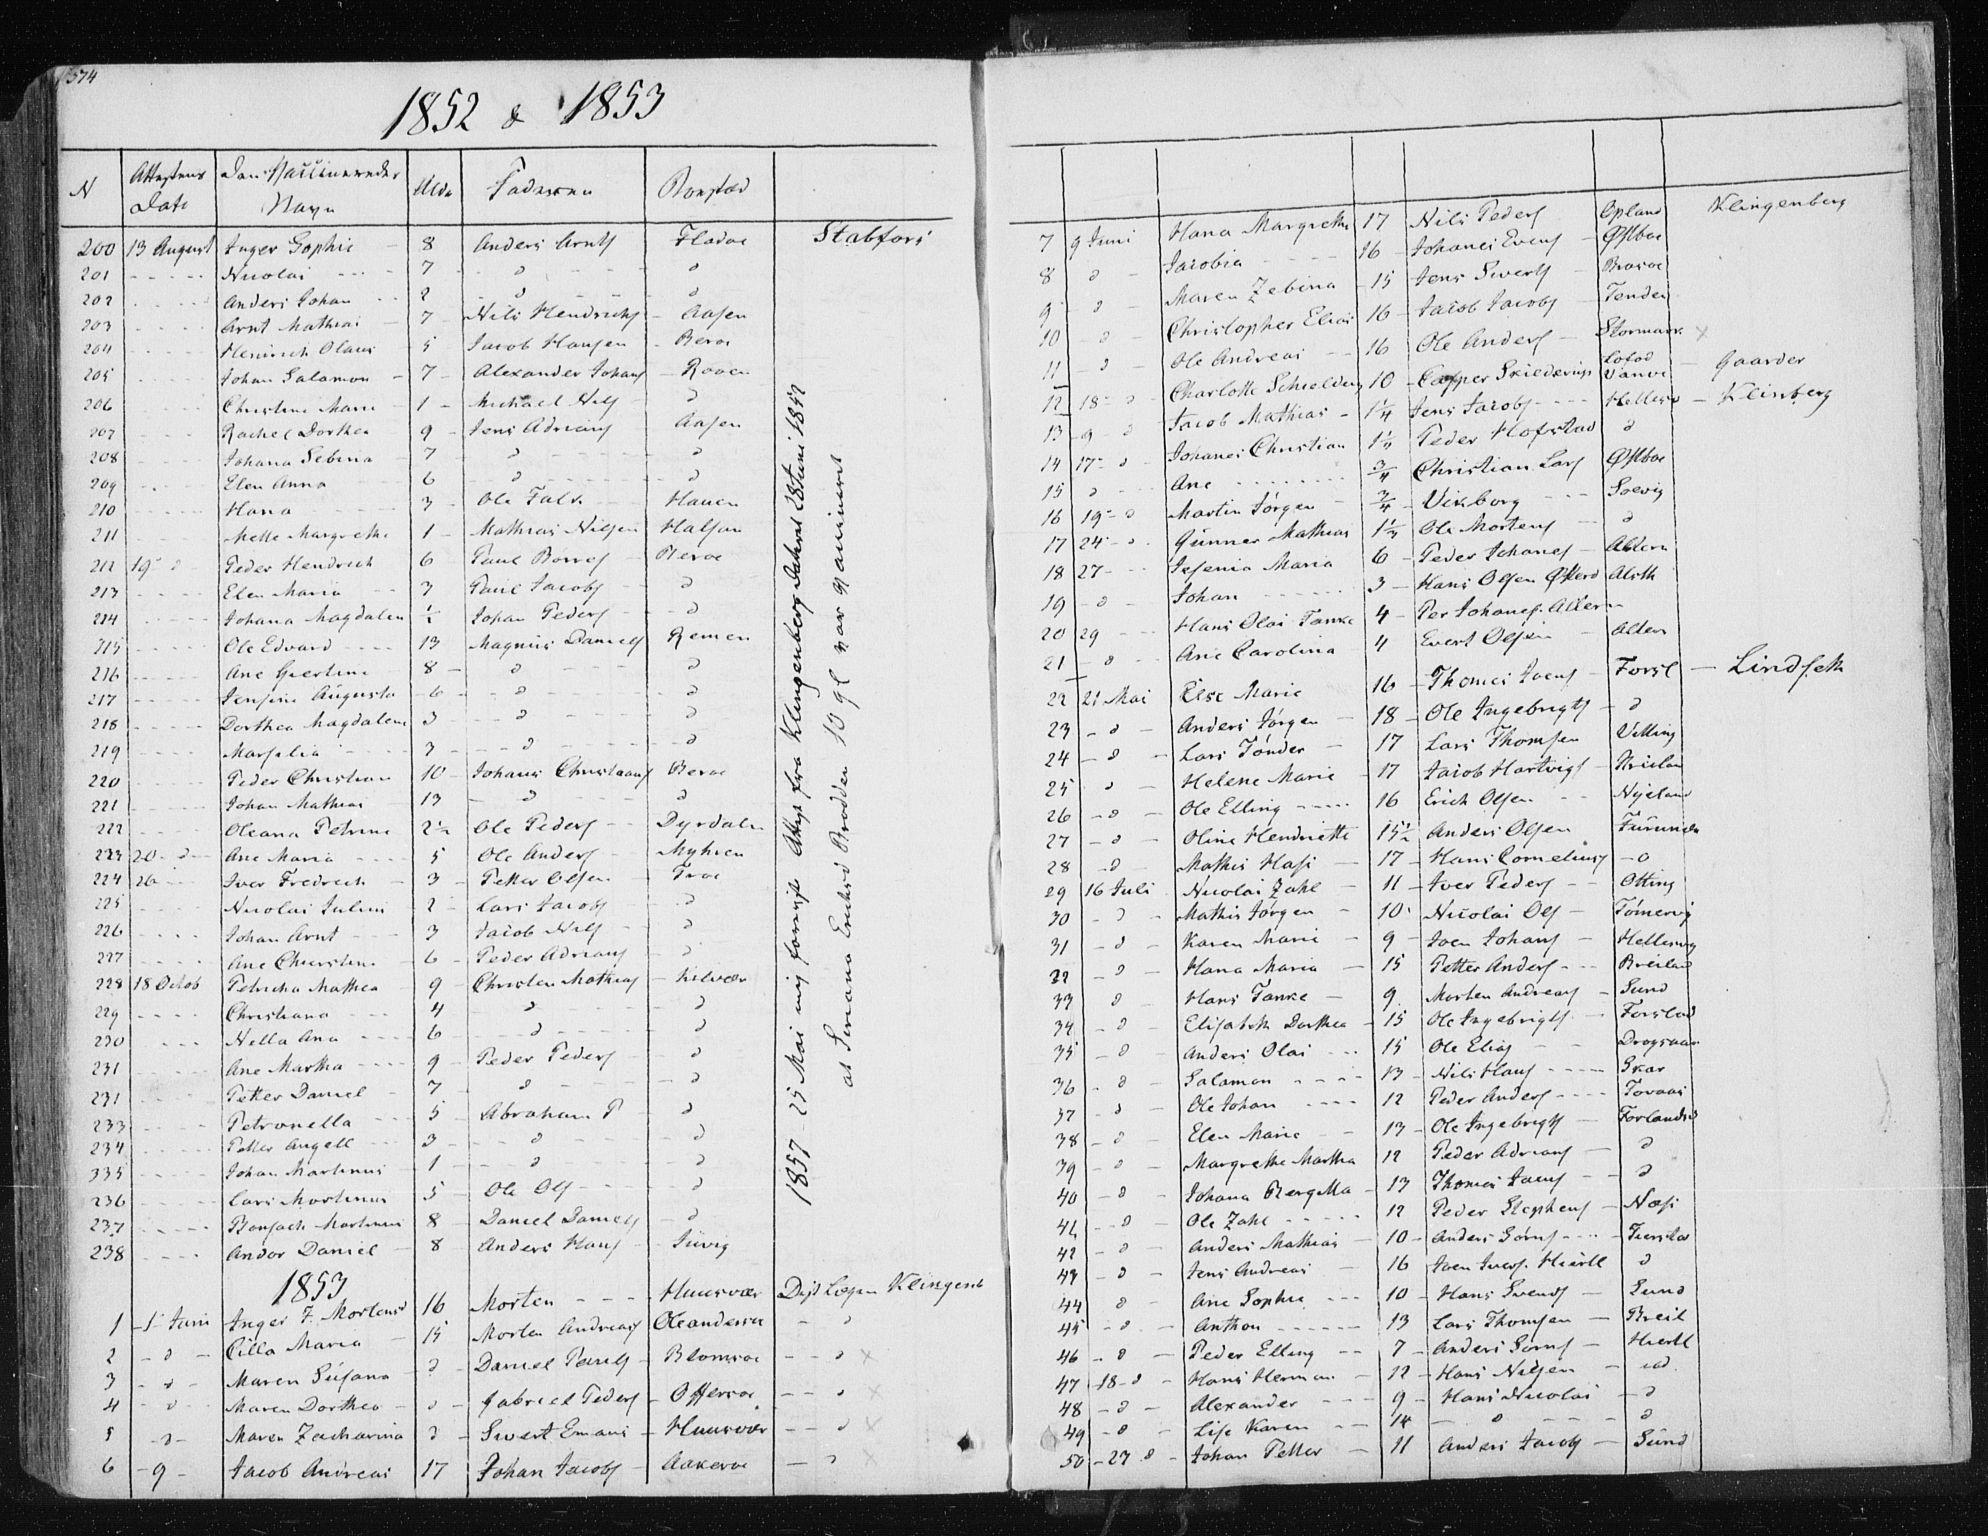 574
1852 & 1853
N Attestens Date Den Vaccineredes Navn Alder Faderen Bopsted
200 13 August Inger Sophie - 8 Anders Arntz Fladøe Stabfors
201 Nicolai - 7 d d
202 Anders Johan 2 d d
203 Arnt Mathias 7 Nils Hendrichs Aasen
204 Henrich Olaus 5 Jacob Hansen Berøe
205 Johan Salamon 7 Alexander Johans
206 Christine Marie 1 Michael Nils d
207 Rachel Dorthea 9 Jens Adrians Aasen
208 Johana Sebina 7 d d
209 Elen Anna 6 d d
210 Hana 3 Ole Falk Hauen
211 Mette Margrethe 1 Mathias Nilsen Halsan
212 19 d Peder Hendrich 6 Paul Børres Berøe
213 Elen Maria 3 Paul Jacobs d
214 Johana Magdalen Johan Peders d
215 Ole Edvard 13 Magnus Daniels Remen
216 Ane Giertine 8 d d
217 Jensine Augusta 6 d d
218 Dorthea Magdalene 3 d d
219 Marselia 3 d d
220 Peder Christian 10 Johans Christians Berøe
221 Johan Mathias 13 d d
222 Oleana Petrine 2½ Ole Peders Dyrdalen
223 20 d Ane Maria 5 Ole Anders Myhren
224 26 Iver Fredrech 3 Petter Olsen Troe
225 Nicolai Julius 2 Lars Jacobs d
226 Johan Arnt 3 Jacob Nils d
227 Ane Christine 6 Peder Adrians d
228 18 Octob Petricha Mathea 9 Christen Mathias Kilvær
229 Christiana 4 d d
230 Nella Ana 6 d d
231 Ane Martha 9 Peder Peders d
231 Petter Daniel 7 d d
233 Petronella 5 Abraham P d
234 Petter Angell 3 d d
335 Johan Martinus 1 d d
236 Lars Mortinus 5 Ole Ols d
237 Bonsach Martinus 8 Daniel Daniels d
238 Andor Daniel 8 Anders Hans
1857 25 Mai mig forevist Attest fra Klingenberg dateret 28 Juni 1852
at Siriana Erichsd Brødden 10 gl var vaccineret
1853
1 1 Juni Inger Z. Mortensd 16 Morten Huusvær Dist Lægen Klingenb
2 d Cilla Maria 15 Morten Andreas Oleandersø d
3 d Maren Susana d Daniel Pauls Blomsøe d ×
4 d Maren Dorthea d Gabriel Peders Offersøe d ×
5 d Maren Zacharina d Sivert Emans Huusvær d ×
6 9 Jacob Andreas 17 Johan Jacobs Aakerøe d ×
7 9 Juni Hana Margrethe 17 Nils Peders Opland Klingenberg
8 d Jacobia 16 Johanes Evens Østbøe
9 d Maren Zebina 15 Jens Siverts Brasøe
10 d Christopher Elias 16 Jacob Jacobs Tenden
11 d Ole Andreas 16 Ole Anders Stormark ×
12 18 d Charlotte Schielderup 10 Casper Skielderup Gaarder
13 9 d Jacob Mathias 1¼ Jens Jacobs Hellesv Klinberg
14 17 d Johanes Christian 1½ Peder Hofstad d
15 d Ane ¾ Christian Lars Østbøe
16 19 d Martin Jørgen ¾ Vikborg Solvig
17 24 Gunner Mathias Ole Mortens d
18 27 Jesenia Maria 6 Peder Johanes Altern
19 d Johan 3 Hans Olsen Alsth
20 29 Hans Olai Tanke 4 Per Johanes Altern
21 d Ane Carolina 4 Evert Olsen Altern
22 21 Mai Else Marie 16 Thomes Joens Forsl Lindseth
23 d Anders Jørgen 18 Ole Ingebrigts d
24 d Lars Tønder 17 Lars Thomsen Vitting
25 d Helene Marie 17 Jacob Hartvigs
26 d Ole Elling 16 Erich Olsen Nyeland
27 d Oline Hendriette 15½ Anders Olsen
28 d Mathis Hass 17 Hans Cornelius d
29 16 Juli Nicolai Zahl 11 Iver Peders Otting
30 d Mathis Jørgen 10 Nicolai Ols Tømervig
31 d Karen Marie 9 Joen Johans Hellesvig
32 d Hana Maria 15 Petter Anders Breiland
33 d Hans Tanke 9 Morten Andreas Sund
34 d Elisabeth Dorthea 15 Ole Ingebrigts Forslad
35 d Anders Olai 15 Ole Elias
36 d Salamon 13 Nils Hans Skar
37 d Ole Johan 12 Peder Anders Tovaas
38 d Elen Marie 13 Ole Ingebrigts Forlandsd
39 d Margrethe Martha 12 Peder Adrians d
40 d Johana Bergitta 13 Thomes Joens d
41 d Ole Zahl 12 Peder Stephens Næss
42 d Anders Mathias 10 Anders Sørns
43 d Jens Andreas 16 Joen d
44 d Ane Sophie 10 Hans Svends Sund
45 d Anthon 13 Lars Thomsen Breil
46 d Peder Elling 7 Anders Sørns Hiertl
47 18 d Hans Herman 12 Hans Nilsen
48 d Alexander 9 Hans Nicolai d
49 d Lise Karen 14 d d
50 27 d Johan Petter 11 Anders Jacobs Sund